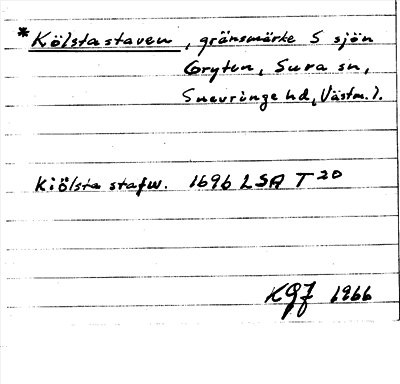 *Kölstastaven, gränsmärke S sjön
Gryten, Sura sn,
Snevringe hd, Västm. l.
Kiölsta stafw. 1696 LSA T 20
KGJ 1966